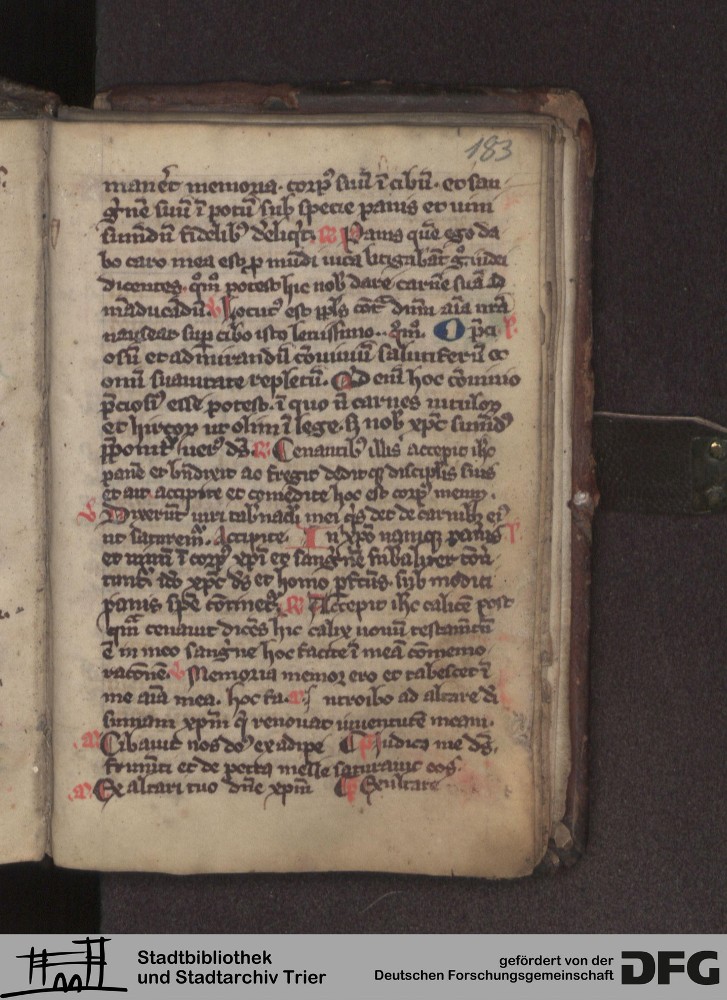 183
maneret memoria. corp⁹ suū ī cibū. et san
ḡnē suū ī potū sub specie panis et vini
sumēdū fidelib⁹ dereliq̄t. R Panis quē ego da
bo caro mea est p̄ mūdi vita litigabāt g⁰ iudei
dicentes. qm̄ potest hic nob̄ dare carnē suā ad
māducādū. v Locut⁹ est ppl̄s cōt̄ dnm̄ aīa nrā
nauseat sup cibo isto leuissimo. qm̄. O p̄ci
osū et admirandū cōuiuiū salutiferū et
omī suauitate repletū. Qd enī hoc cōuiuio
p̄ciosi⁹ esse potest. ī quo nō carnes vituloꝝ
et hircoꝝ ut olim ī lege. sꝫ nob̄ xp̄c sumēd⁹
p̄ponit' uer⁹ ds̄. R Cenantib⁹ illis accepit ihc
panē et bn̄dixit ac fregit deditqꝫ discipl̄is suis
et ait. accipite et comedite hoc est corp⁹ meum.
v Dixerūt viri tab̄nacl̄i mei q̄s det de carnib⁹ ei⁹
ut saturem̄. Accipite. In xp̄o namqꝫ panis
et vinū ī corp⁹ xp̄i et sangnē sub̄aliter cōū
tunt' ido xp̄c ds̄ et homo p̄fcūs. sub modici
panis spē cōtinet'. R Accepit ihc calicē post
qm̄ cenauit dicēs hic calix nouū testamētū
ē in meo sangne hoc facite ī meā cōmemo
rationē. v Memoria memor ero et tabescet ī
me aīa mea. hoc fa. a Introibo ad altare dī
sumam xp̄m q̄ renouat iuuentutē meam.
a Cibauit nos do⁹ ex adipe p̄ Iudica me ds̄.
frumēti et de petra melle saturauit eos.
a Ex altari tuo dn̄e xp̄m p̄ Exultate
Stadtbibliothek
und Stadtarchiv Trier
gefördert von der
Deutschen Forschungsgemeinschaft
DFG